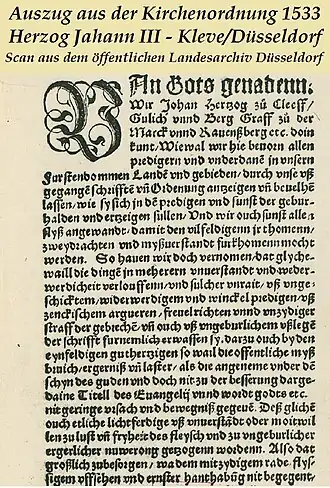 Auszug aus der Kirchenordnung 1533
Herzog Jahann III - Kleve/Düsseldorf
Scan aus dem öffentlichen Landesarchiv Düsseldorf
VAn Gots genadenn.
Wir Johan Hertzog zů Cleeff/
Gulich vnnd Berg Graff zů der
Marck vnnd Rauenßberg etc. doin
kunt, Wiewal wir hie beuorn allen
predigern vnnd vnderdanẽ in vnsern
Furstendommen Landẽ vnd gebieden/ durch vnse vß
gegangẽ schrifftẽ vñ Ordenung anzeigen vñ beuelhẽ
lassen/ wie sy sich in dẽ predigen vnd sunst der gebur-
halden vnd ertzeigen sullen/ Vnd wir ouch sunst alle,
flyß angewandt/ damit den vilfeldigenn jrthomenn/
zweydrachten vnd myßuerstandt furkhomenn mocht
werden. So hauen wir doch vernomen/ dat glyche-
waill die dingẽ in mehererm vnuerstandt vnd wedder-
werdicheit verlouffenn/ vnd sulcher vnrait/ vß vnge-
schicktem/ widerwerdigem vnd winckel predigen/ vß
zenckischem argueren/ freuel richten vnnd vnzydiger
straff der gebrechẽ/ vñ ouch vß vngeburlichem vßlegẽ
der schrifft furnemlich erwassen sy/ darzu ouch by den
eynfeldigen guthertzigen so wail die offentliche myß
bruich/ ergerniß vñ laster/ als die angeneme vnder dẽ
schyn des guden vnd doch nit zu der besserung darge-
daine Titell des Euangelij vnnd wordt godts etc.
nit geringe vrsach vnd bewegniß gegeuẽ. Deß glichẽ
ouch etliche lichtferdige vß vnuerstandt oder moitwil
len zu lust vñ fryheit des fleysch vnd zu vngeburlicher
ergerlicher nuwerong getzogenn wordenn. Also dat
größlich zubesorgen/ wa dem mit zydigem rade/ flys-
sigem vffsehen vnd ernster hanthabũg nit begegent/